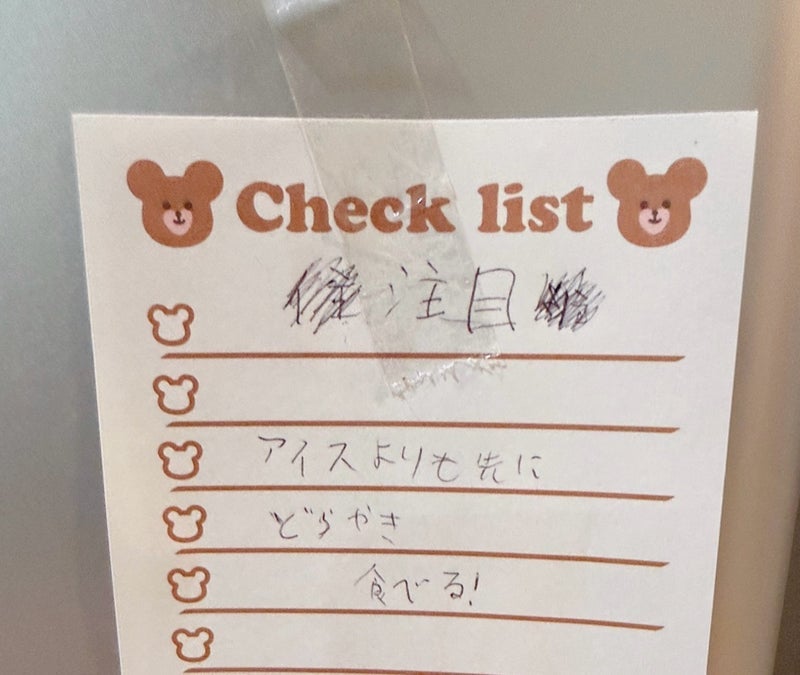 Check list
注目
アイスよりも先に
どらやき
食べる!